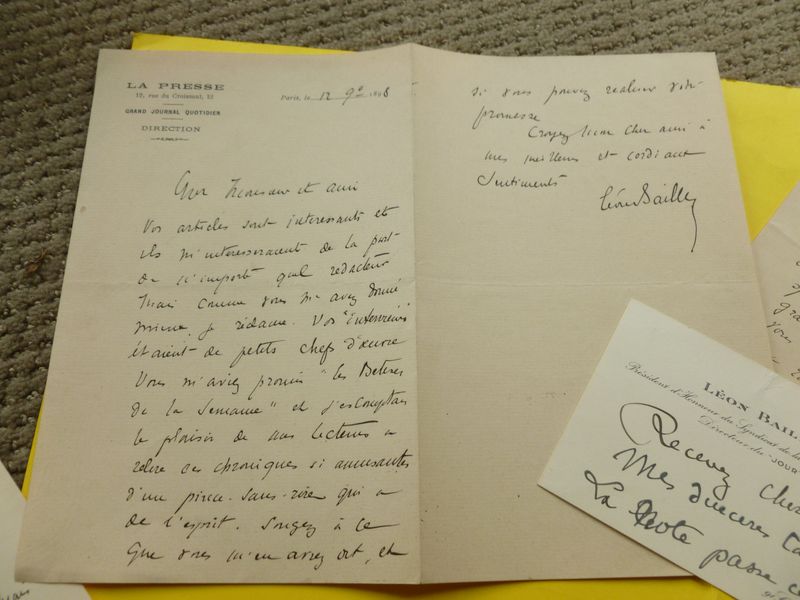 LA PRESSE
12, rue du Croissant, 12
GRAND JOURNAL QUOTIDIEN
DIRECTION
Paris, le 12 9e 1898
Cher Monsieur et ami
Vos articles sont interessants et
ils m'interesseraient de la part
de n'importe quel redacteur
Mais comme vous m'avez donné
mieux, je réclame. Vos "Interviews"
étaient de petits chefs d'œuvre
Vous m'aviez promis "les Betises
de la Semaine" et j'escomptais
le plaisir de nos lecteurs a
relire ces chroniques si amusantes
d'un pince-sans-rire qui a
de l'esprit. Songez à ce
que vous m'en avez dit, et
si vous pouvez realiser votre
promesse
Croyez bien cher ami à
mes meilleurs et cordiaux
Sentiments
Léon Bailby
LÉON BAIL
Président d'Honneur du Syndicat de la
Directeur du JOUR
Recevez cher
Mes sinceres
La Note passe